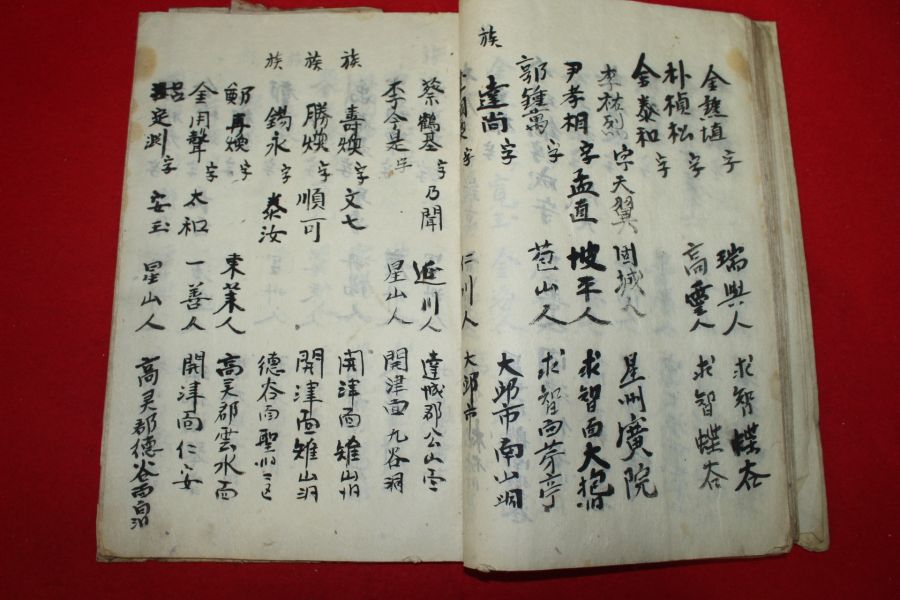 金熟埴 字 瑞興人 求智蝶谷
朴禎松 字 高靈人 求智蝶谷
金泰和 字
李 烈 字天翼 固城人 星州廣院
尹孝相 字孟直 坡平人 求智面大抱洞
郭鍾萬 字 苞山人 求智面芳亭
族 達尚 字 大邱市南山洞
字 仁川人 大邱市
蔡鶴基 字乃聞 人 達城郡公山面
李今是 字 星山人 開津面九谷洞
族 壽煥 字文七 開津面雉山洞
族 勝煥 字順可 開津面雉山洞
族 錫永 字泰汝 德谷面聖
鄭再煥 字 東萊人 高灵郡雲水面
金用聲 字太和 一善人 開津面仁安
呂定淵 字安玉 星山人 高灵郡德谷面